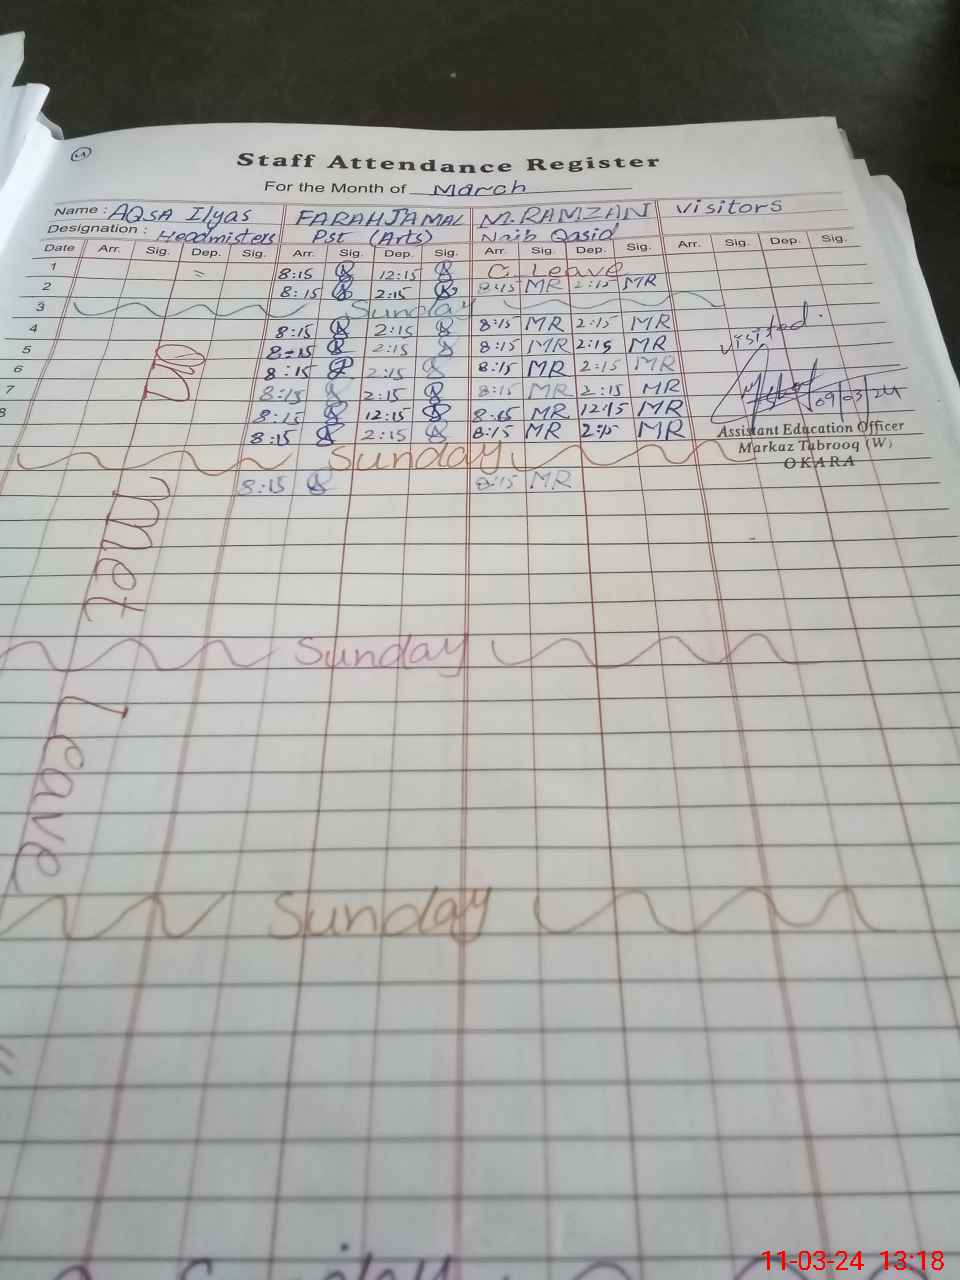 Staff Attendance Register
For the Month of March
Name : AQSA Ilyas FARAH JAMAL M. RAMZAN visitors
Designation : Headmisters Pst (Arts) Naib Qasid
Date Arr. Sig. Dep. Sig. Arr. Sig. Dep. Sig. Arr. Sig. Dep. Sig. Arr. Sig. Dep. Sig.
1 8:15 12:15 C. Leave
2 8:15 2:15 8:15 MR 2:15 MR
3 Sunday
4 8:15 2:15 8:15 MR 2:15 MR
5 8:15 2:15 8:15 MR 2:15 MR
6 8:15 2:15 8:15 MR 2:15 MR
7 8:15 2:15 8:15 MR 2:15 MR
8 8:15 12:15 8:15 MR 12:15 MR
8:15 2:15 8:15 MR 2:15 MR
visited.
09/03/24
Assistant Education Officer
Markaz Tabrooq (W)
OKARA
Sunday
8:15 8:15 MR
on
Met
Leave
Sunday
Sunday
Sunday
11-03-24 13:18